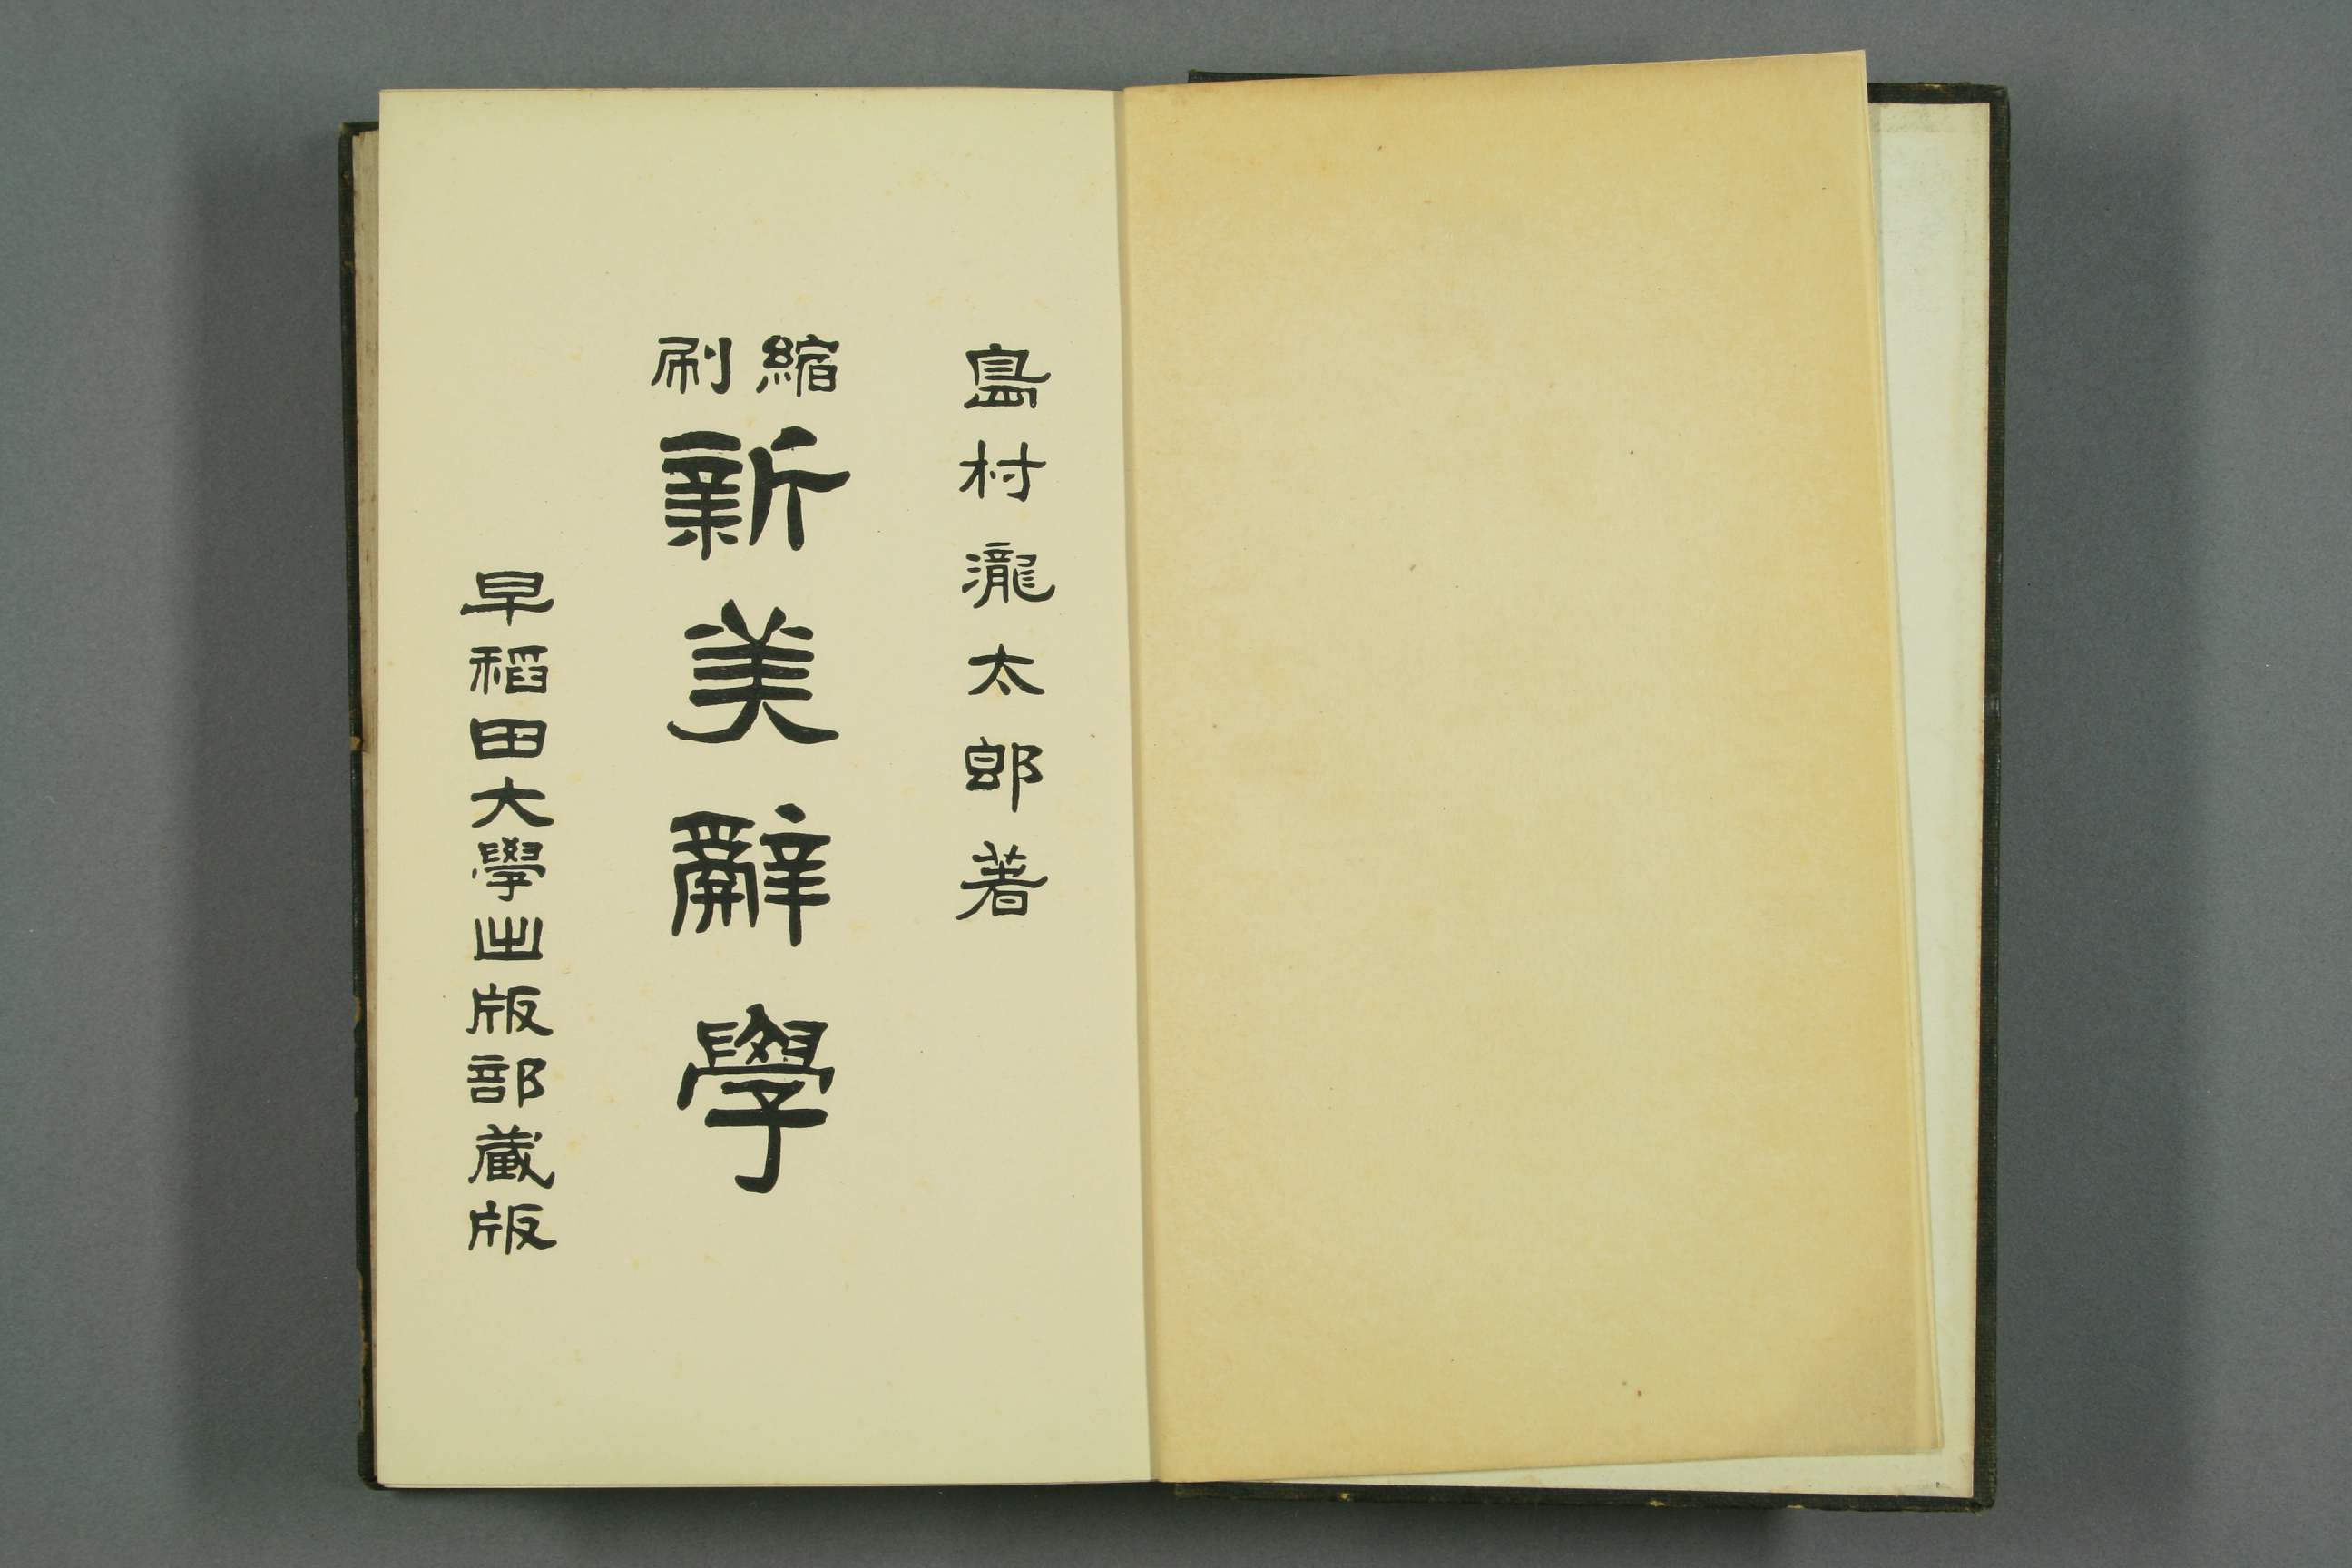 島村瀧太郎著
縮刷
新美辭學
早稻田大學出版部藏版